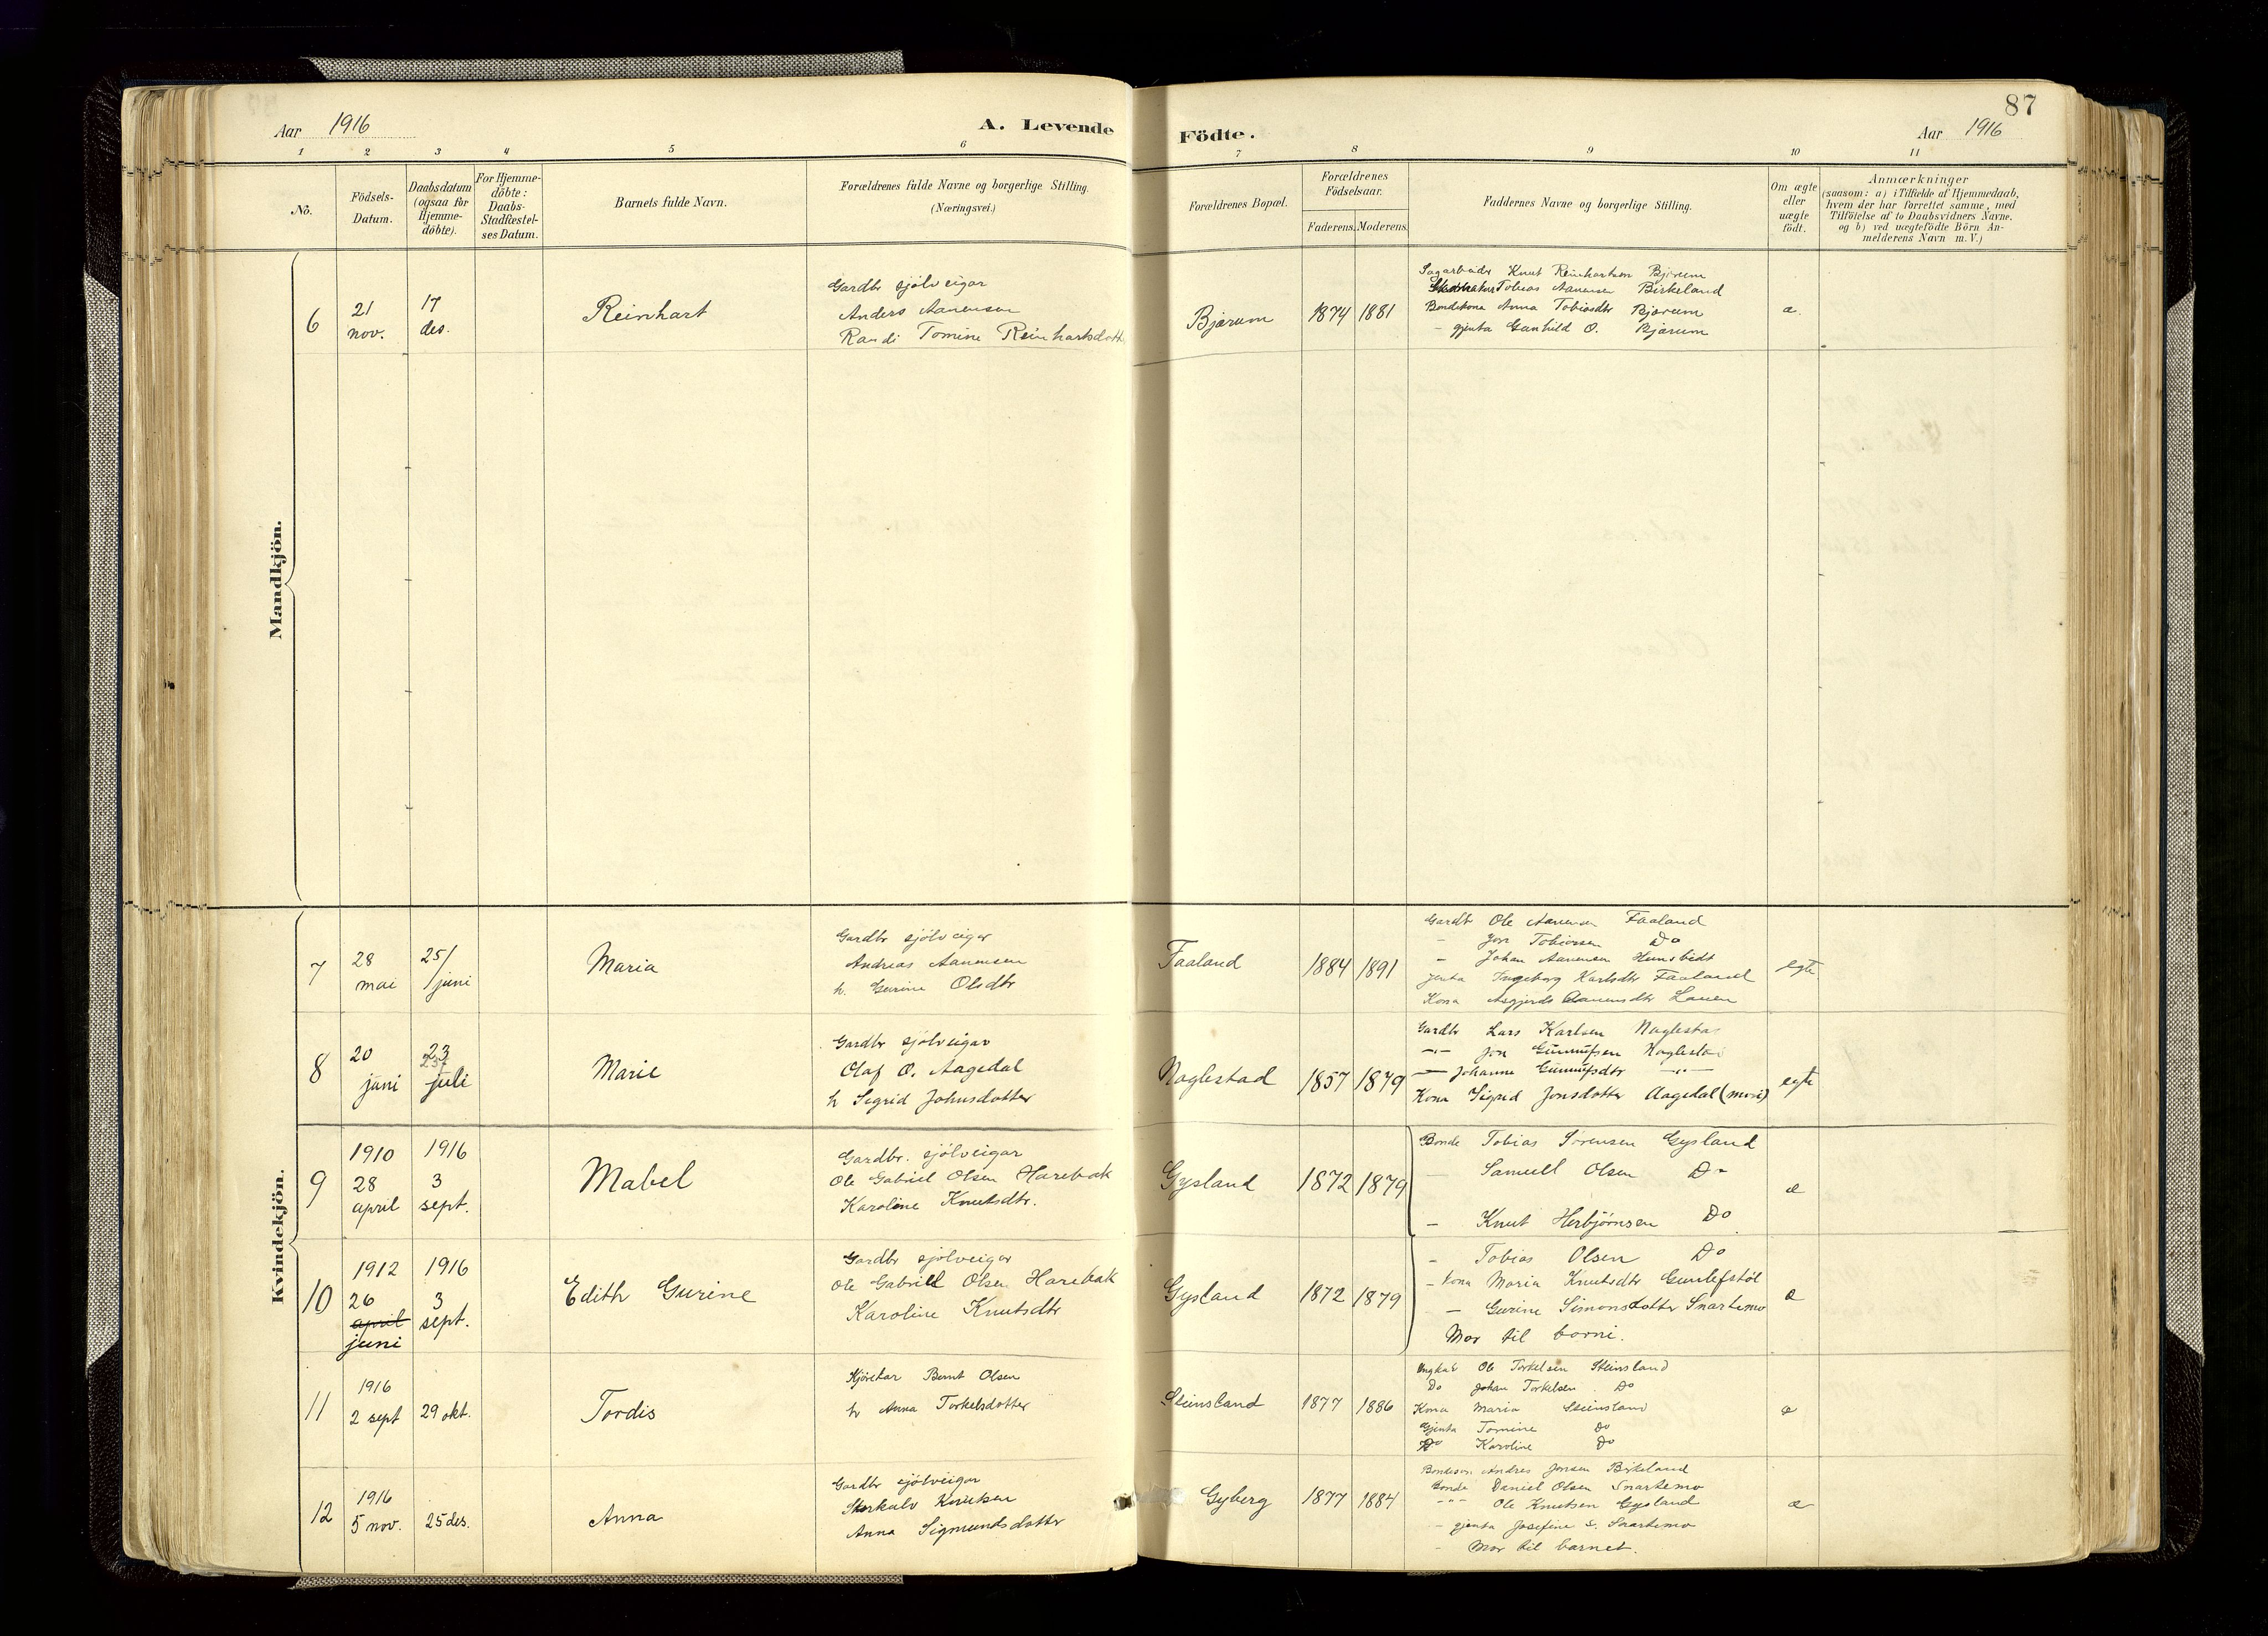 87
Aar 1916
A. Levende Födte.
Aar 1916
1 2 3 4 5 6 7 8 9 10 11
No.
Födsels-
Datum.
Daabsdatum
(ogsaa for
Hjemme-
döbte).
For Hjemme-
döbte:
Daabs-
Stadfæstel-
ses Datum.
Barnets fulde Navn.
Forældrenes fulde Navne og borgerlige Stilling.
(Næringsvei.)
Forældrenes Bopæl.
Forældrenes
Födselsaar.
Faderens. Moderens.
Faddernes Navne og borgerlige Stilling.
Om ægte
eller
uægte
födt.
Anmærkninger
(saasom: a) i Tilfælde af Hjemmedaab,
hvem der har forrettet samme, med
Tilföielse af to Daabsvidners Navne.
og b) ved uægtefödte Börn An-
melderens Navn m. V.)
Mandkjön.
6
21
nov.
17
des.
Reinhart
Gardbr sjölveigar
Anders Aanensen
Randi Tomine Reinhartsdottr
Bjærum
1874 1881
Sagarbeider Knut Reinhartsen Bjærum
Tobias Aanensen Birkeland
Bondekona Anna Tobiasdtr Bjærum
- gjenta Gunhild O. Bjærum
æ.
Kvindekjön.
7
28
mai
25/
/juni
Maria
Gardbr sjölveigar
Andreas Aanensen
h. Gurine Olsdtr
Faaland
1884 1891
Gardbr Ole Aanensen Faaland
- Jon Tobiasen Do
- Johan Aanensen Hunsbedt
Jenta Ingeborg Karlsdtr Faaland
Kona Asgjerds Aanensdtr Lauen
egte
8
20
juni
23
juli
Marie
Gardbr sjölveigar
Olaf O. Aagedal
h Sigrid Johnsdotter
Naglestad
1857 1879
Gardbr Lars Karlsen Naglestad
-"- Jon Gunnufsen Naglestad
— Johanne Gunnufsdtr -"-
Kona Sigrid Jonsdotter Aagedal (mori)
egte
9
1910
28
april
1916
3
sept.
Mabel
Gardbr. sjölveigar
Ole Gabriel Olsen Harebak
Karoline Knutsdtr.
Gysland
1872 1879
Bonde Tobias Sörensen Gysland
- Samuell Olsen Do
- Knut Herbjörnsen Do
æ
10
1912
26
april
juni
1916
3
sept.
Edith Gurine
Gardbr sjölveigar
Ole Gabriell Olsen Harebak
Karoline Knutsdtr
Gysland
1872 1879
- Tobias Olsen Do
- kona Maria Knutsdtr Gunlefstöl
- Gurine Simonsdotter Snartemo
Mor til borni.
æ
11
1916
2 sept
29 okt.
Tordis
Kjörekar Bernt Olsen
h Anna Torkelsdotter
Steinsland
1877 1886
Ungkar Ole Torkelsen Steinsland
Do Johan Torkelsen Do
Kona Maria Steinsland
Gjenta Tomine Do
Do Karoline Do
æ
12
1916
5 nov.
25 des.
Anna
Gardbr sjölveigar
Storkalv Knutsen
Anna Sigmundsdotter
Gyberg
1877 1884
Bondeson Andres Jonsen Birkeland
Bonde Daniel Olsen Snartemo
-"- Ole Knutsen Gysland
- gjenta Josefine S. Snartemo
- Mor til barnet.
æ